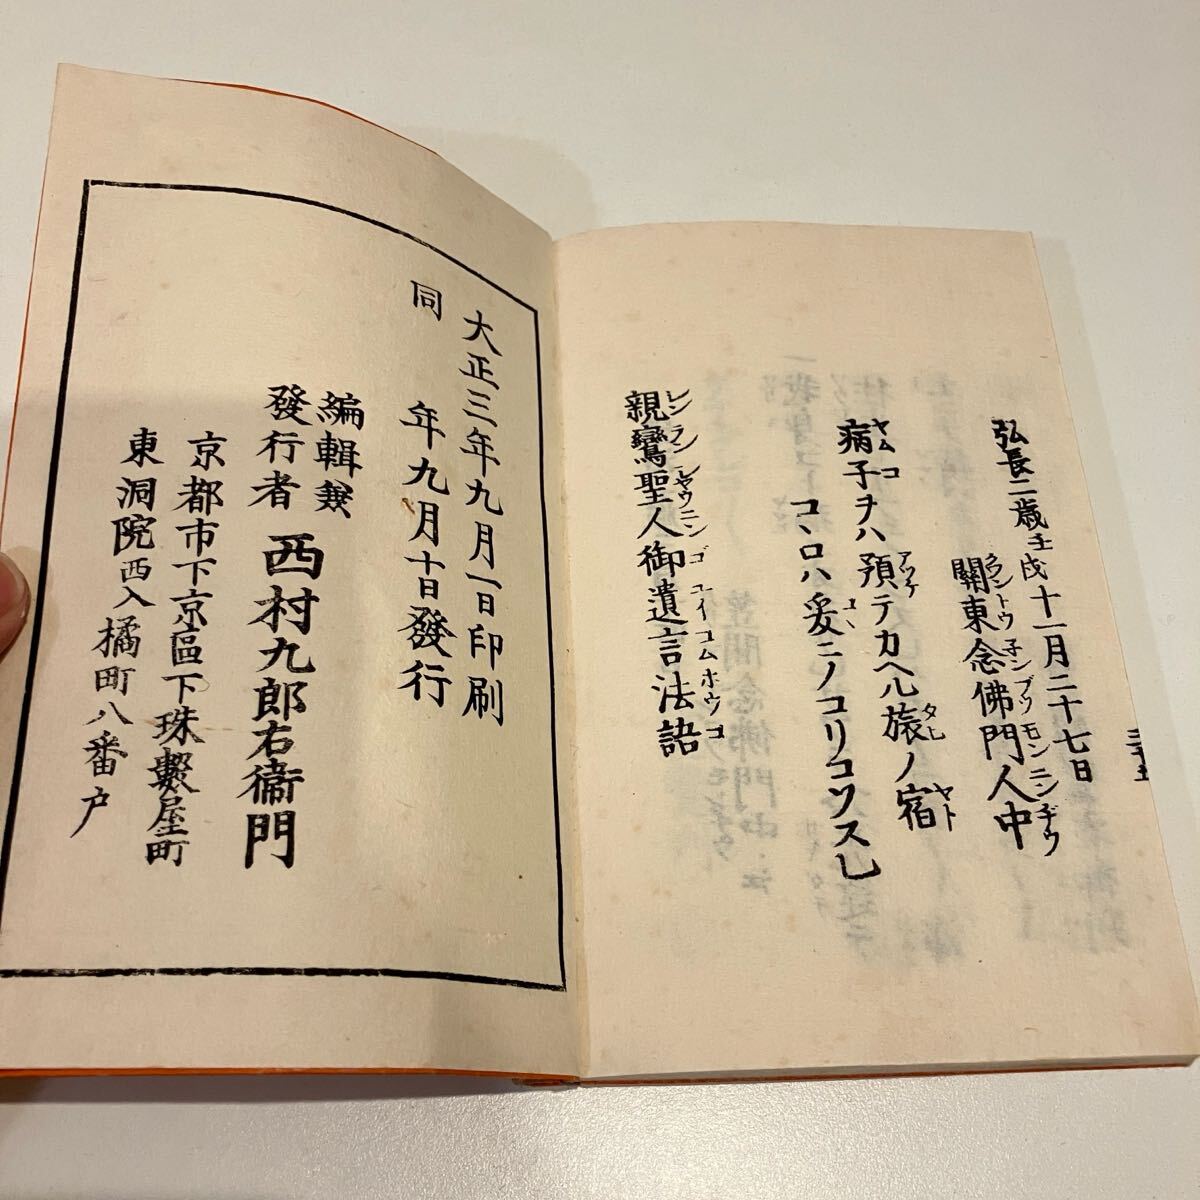 弘長二歳壬戌十一月二十七日
關東念佛門人中
病子ヲハ預テカヘル旅ノ宿
コヽロハ爰ニノコリコソスレ
親鸞聖人御遺言法語
大正三年九月一日印刷
同 年九月十日發行
編輯兼
發行者 西村九郎右衞門
京都市下京區下珠數屋町
東洞院西入橘町八番戸